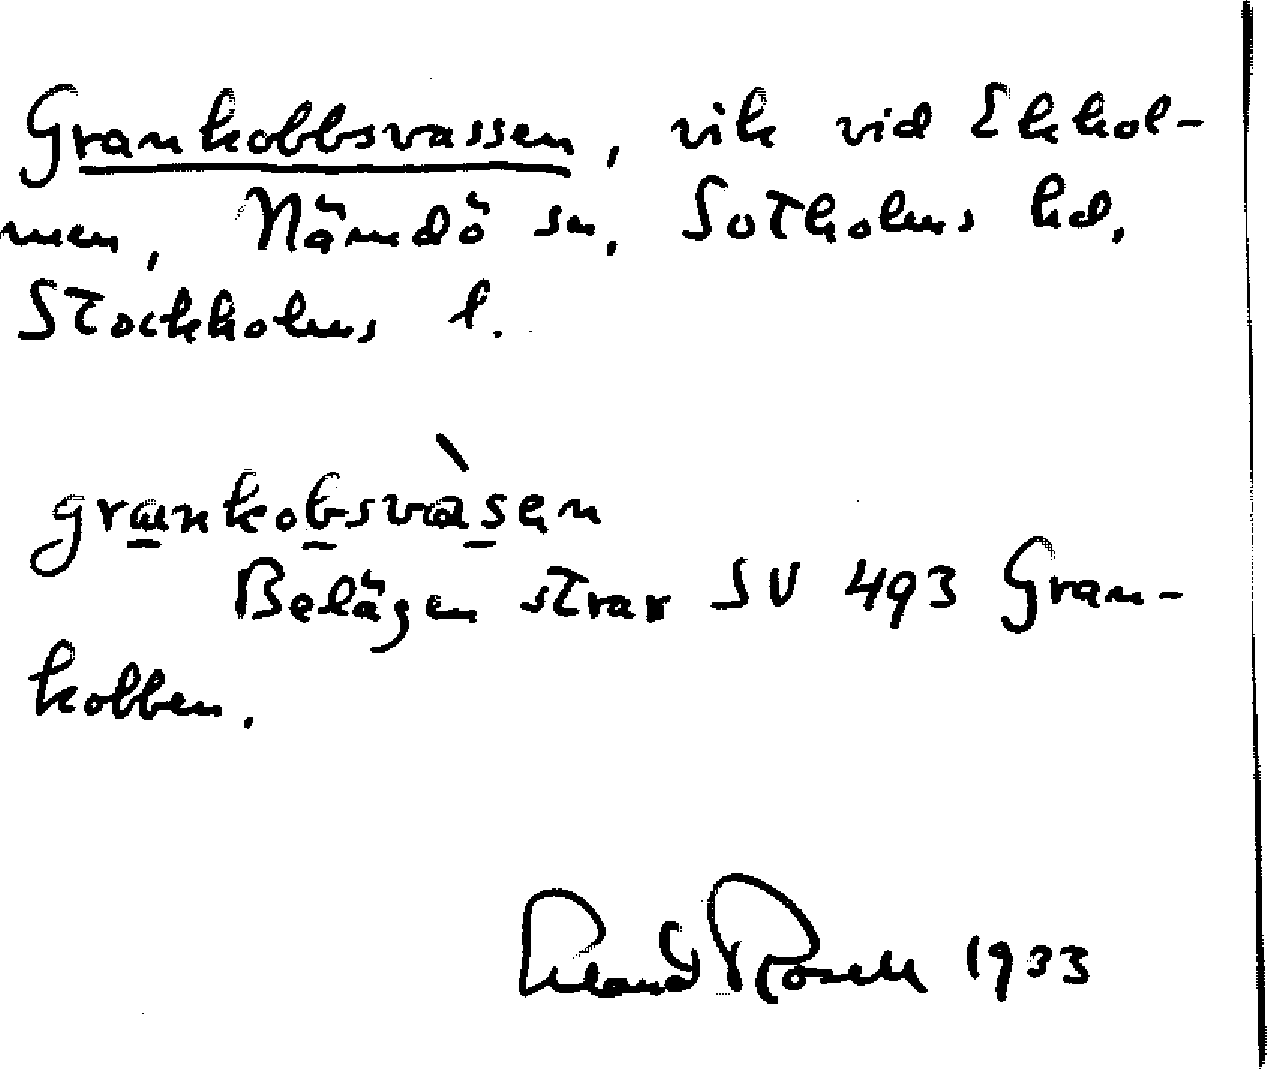 Grankobbsvassen, vik vid Ekhol-
men, Nämdö sn, Sotholms hd,
Stockholms l.
grankobsvàsen
Belägen strax SV 493 Gran-
kobben.
Erland Rosell 1933